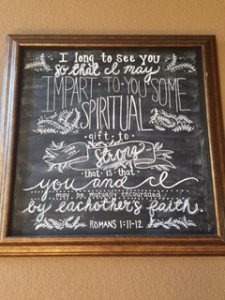 I long to see you
so that I may
IMPART TO YOU SOME
SPIRITUAL
gift to
strong
that is that
you and I
may be mutually encouraged
by eachothers faith.
ROMANS 1:11-12